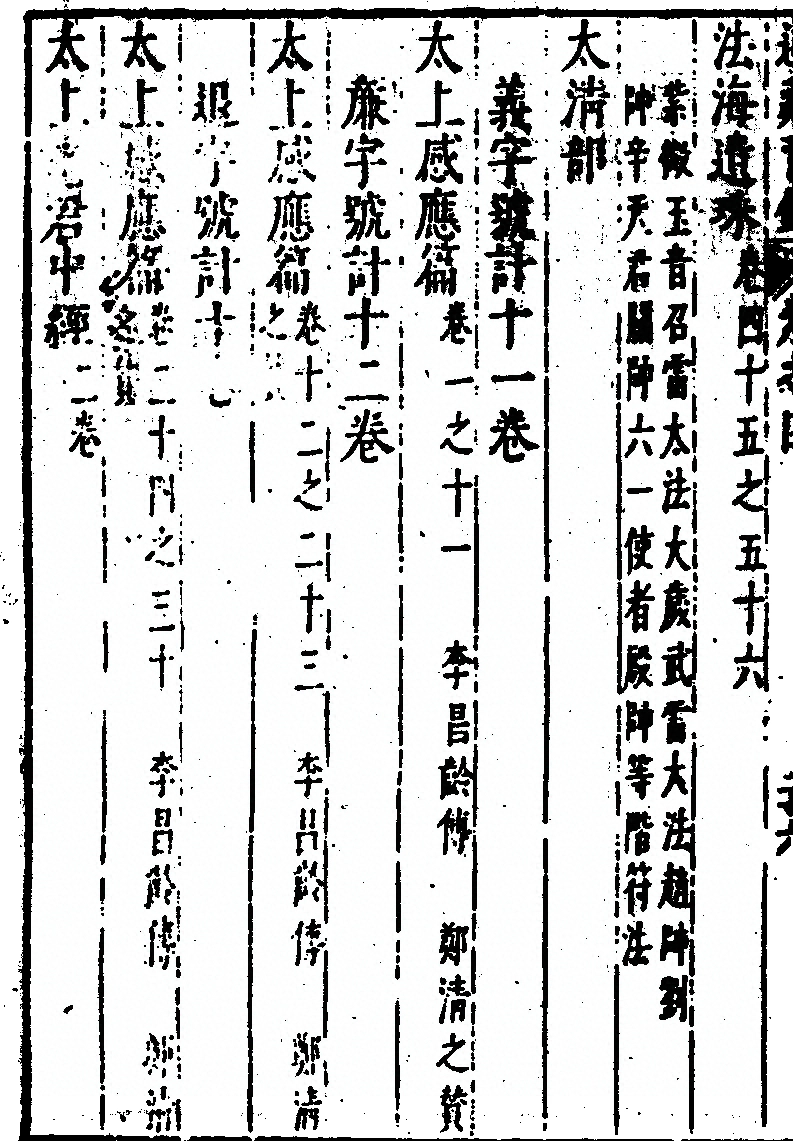 法海遺珠 卷四十五之五十六
紫微玉音召雷大法太歲武雷大法趙帥劉
帥辛天君關帥六一使者殷帥等階符法
太清部
義字號計十一卷
太上感應篇 卷一之十一 李昌齡傳 鄭清之贊
廉字號計十二卷
太上感應篇 卷十二之二十三 李昌齡傳 鄭清
退字號計
太上感應篇 卷二十四之三十 李昌齡傳 鄭清
太上老君中經 二卷